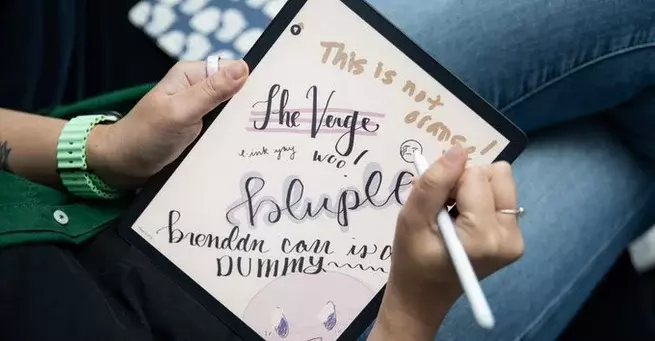 This is not
orange!
The Verge
e-ink yay
woo!
bluple
brendan carr is a
DUMMY